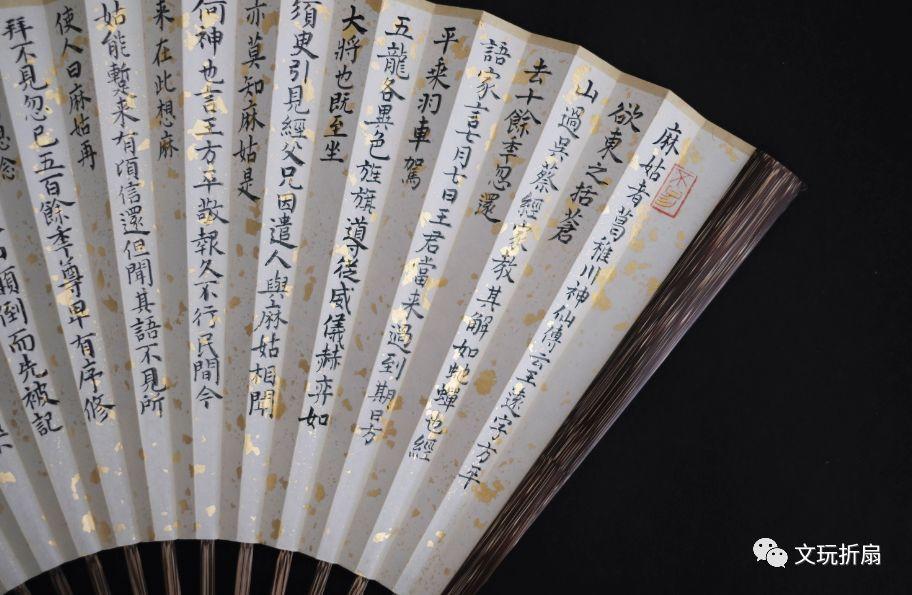 麻姑者葛稚川神仙傳云王遠字方平
欲東之括蒼
山過吳蔡經家教其解如蛇蟬也經
去十餘季忽還
語家言七月七日王君當来過到期日方
平乗羽車駕
五龍各異色旌旗導從威儀赫弈如
大將也既至坐
須臾引見經父兄因遣人與麻姑相聞
亦莫知麻姑是
何神也言王方平敬報久不行民間今
来在此想麻
姑能蹔来有頃信還但聞其語不見所
使人曰麻姑再
拜不見忽已五百餘季尊卑有序修
思念
顛倒而先被記
文玩折扇